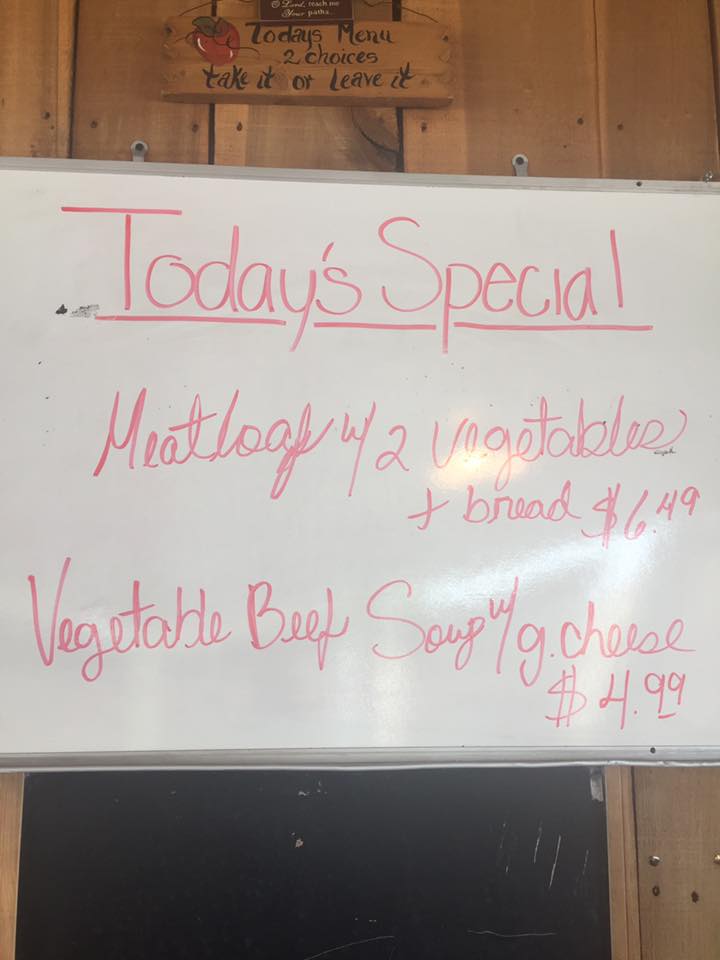 O Lord, teach me
Your paths...
Todays Menu
2 choices
take it or Leave it
Today's Special
Meatloaf w/ 2 vegetables
+ bread $6.49
Vegetable Beef Soup w/ g. cheese
$4.99